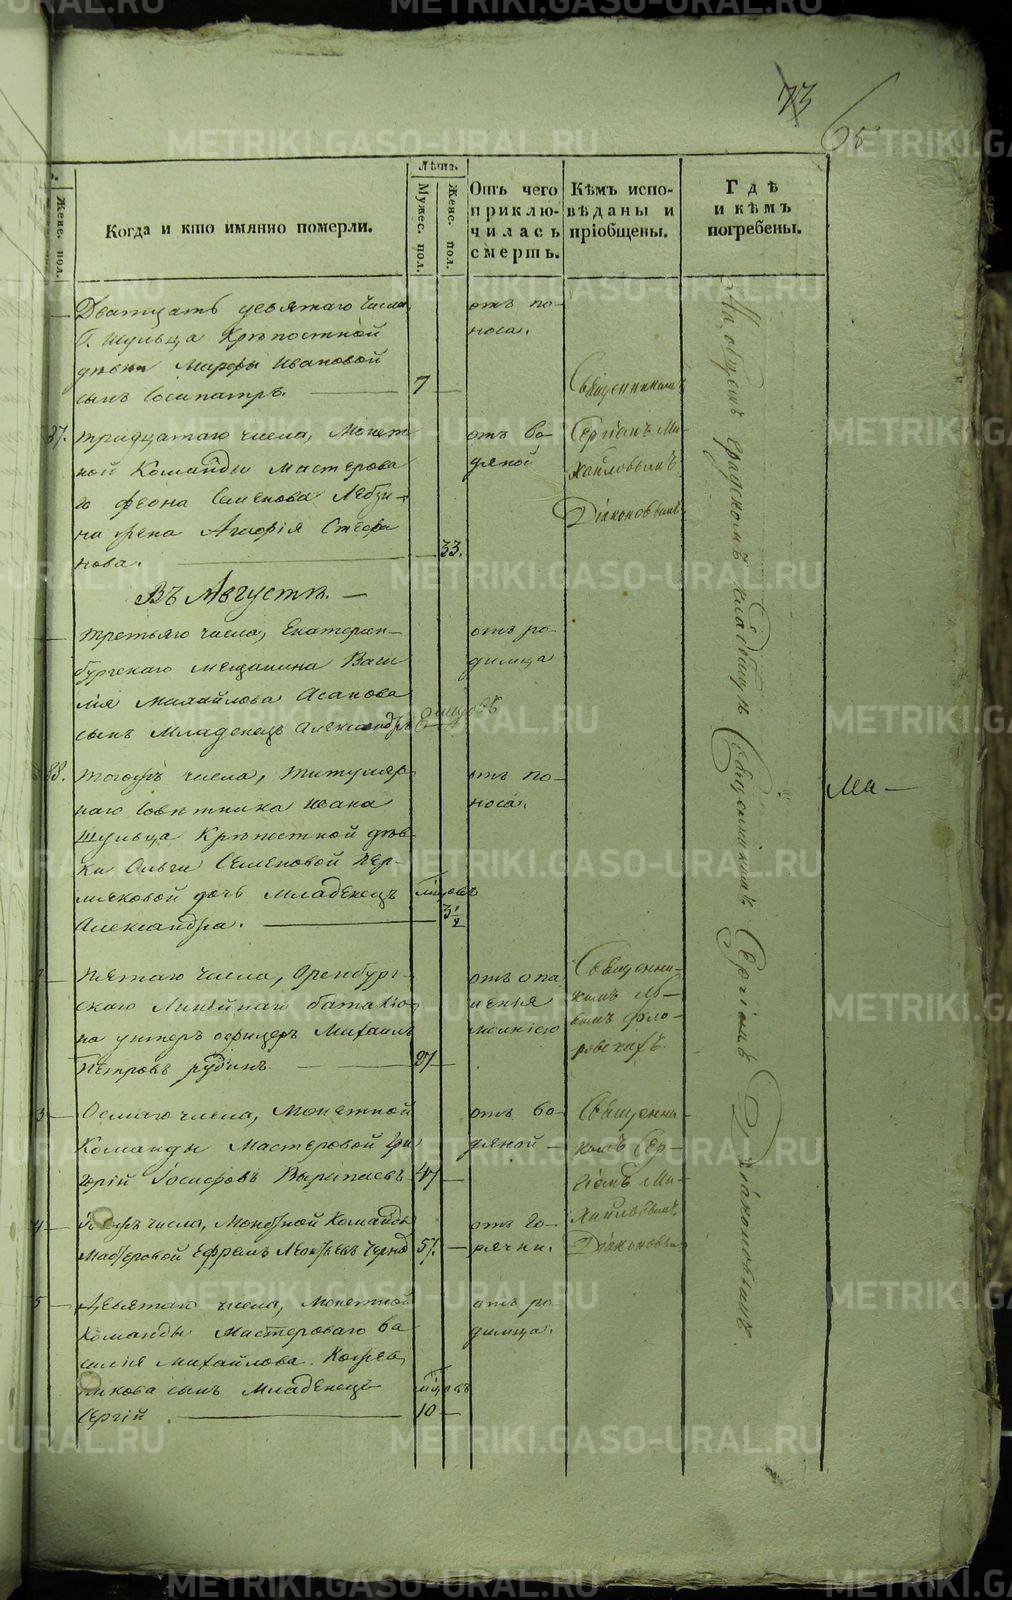 73
65
Женс. пол.
Когда и кто имянно померли.
Лѣта.
Мужес. пол.
Женс. пол.
Отъ чего приклю-чилась смерть.
Кѣмъ испо-вѣданы и пріобщены.
Гдѣ и кѣмъ погребены.
Дватцать девятаго числа,
Г. Шульца Крѣпостной
дѣвки Марфы Ивановой
сынъ Сосипатръ.
7
отъ по-
носа.
37.
тридцатаго числа, Монет-
ной Команды мастерова-
го Феона Семенова
жена Стефа-
нова.
33.
отъ во-
дяной
Священникомъ
Сергіемъ Ми-
хайловымъ
Діаконовымъ
Въ Августѣ.
1
третьяго числа, Екатерин-
бургскаго мещанина Васи-
лія Михайлова Асанова
сынъ Младенецъ Александръ
отъ ро-
димца
38.
тогожъ числа, титуляр-
наго Совѣтника Ивана
Шульца Крѣпостной дѣв-
ки Ольги Семеновой Пер-
мяковой дочь Младенецъ
Александра.
3 1/2
отъ по-
носа.
2
Пятаго числа, Оренбург-
скаго Линѣйнаго баталіо-
на унтеръ офицеръ Михаилъ
Петровъ Рудинъ.
27
Священни-
комъ
3
Осмаго числа, Монетной
Команды Мастеровой Гри-
горій Іосифовъ
47
отъ во-
дяной
Священни-
комъ Сер-
гіемъ Ми-
хайловымъ
Діаконовымъ
4
Тогожъ числа, Монетной Команды
Мастеровой Ефремъ Леонтьевъ
57.
отъ го-
рячки.
5
Девятаго числа, Монетной
Команды Мастероваго Ва-
силія Михайлова
сынъ Младенецъ
Сергій.
10
отъ ро-
димца.
На общемъ градскомъ кладбищѣ Священникомъ Сергіемъ Діаконовымъ
Ма-
METRIKI.GASO-URAL.RU